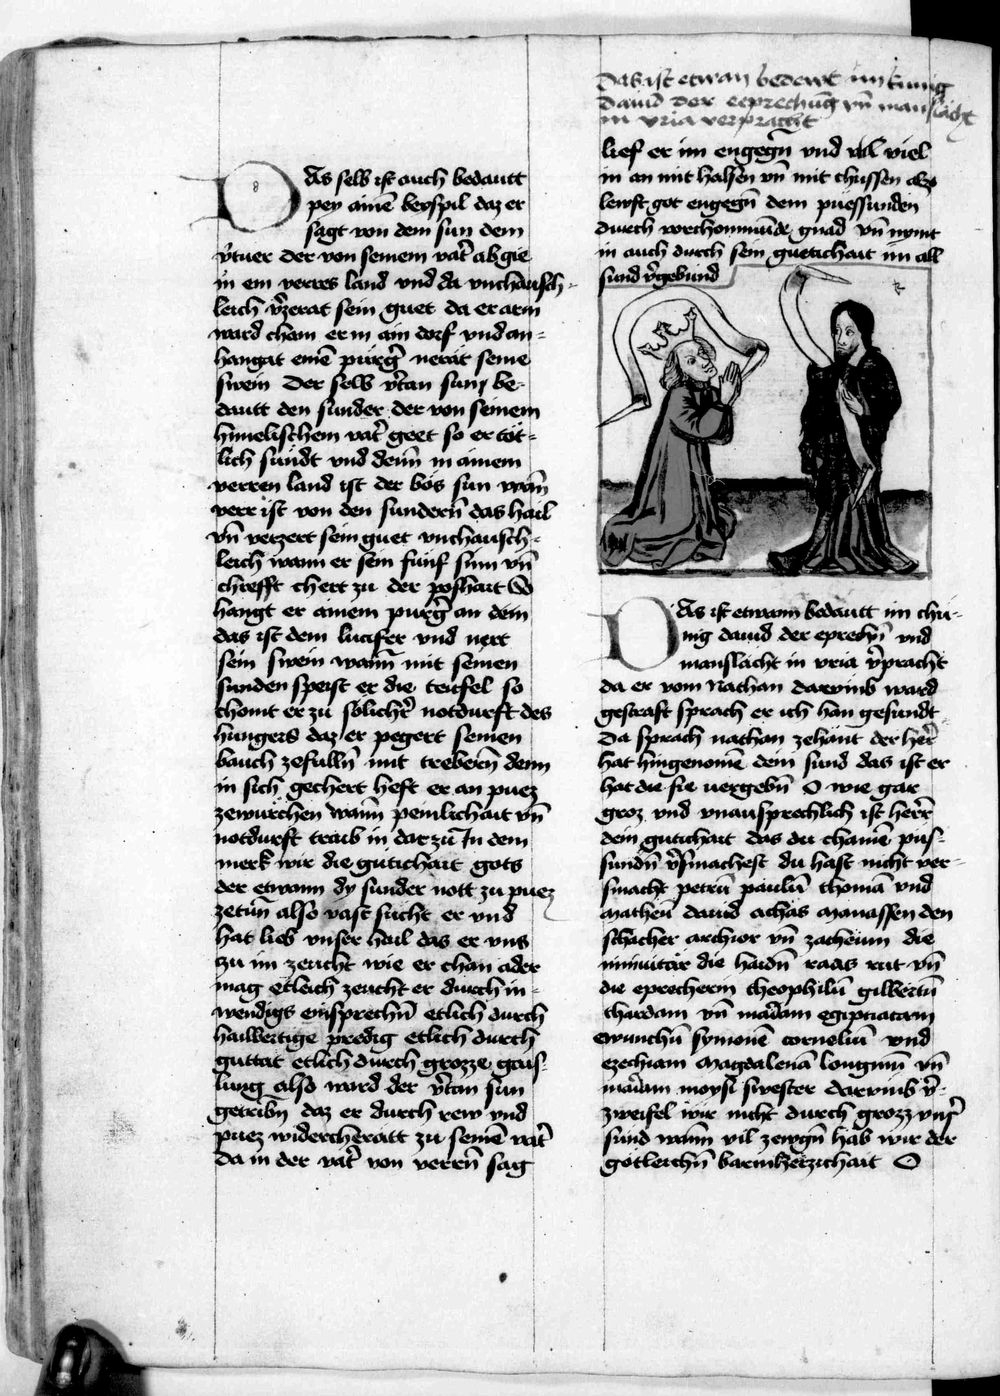 Das selb ist auch bedautt
pey ainē beyspil daz er
sagt von dem sun dem
v̾tuer der von seinem vat̾ ab gie
in em verres land vnd da vnchausch-
leich v̾zerat sein guet da er arm
ward cham er in ain dorf vnd an-
hangat einē purg̾ nerat seine
swein Der selb v̾tan sun be-
dautt den sunder der von seinem
himelischem vat̾ geet so er töt-
lich sündt vnd denn in ainem
verren land ist der bös sun wann
verr ist von den sundern̄ das hail
vn̄ verzert sein guet vnchausch-
leich wann er sein fünf sinn vn̄
chrefft chert zu der poshait So
hangt er ainem purg̾ an dem
das ist dem lucifer vnd nert
sein swein wann̄ mit seinen
sunden speist er die teufel so
chomt er zu sölich̾ notdurft des
hungers daz er pegert seinen
bauch zefulln̄ mit trebern̄ denn
in sich gechert heft er an puez
zewürchen wann peinlichait vn̄
notdurft traib in dar zū In dem
merk wir die gütichait gots
der etwann dy sunder nott zu puez
zetūn also vast sücht er vnd
hat lieb vnser hail das er vns
zu im zeucht wie er chan ader
mag etleich zeucht er durch in-
wendigs einsprechn̄ etlich durch
hailbertige predig etlich durch
guttat etlich durch grozze gais-
lung also ward der v̾tan sun
getribn̄ daz er durch rew vnd
puez widercheratt zu seinē vat̾
Da in der vat̾ von verrn̄ sag
Das ist etwan bedewt im kunig
dauid der eeprechūg vn̄ manslacht
in vria verpracht
lief er im engegn̄ vnd viel
in an mit halsen vn̄ mit chussen also
lewft got engegn̄ dem puessunden
durch vorchommūde gnad vn̄ nymt
in auch durch sein guetichait im all
sund v̾gebund
Das ist etwann bedautt im chü-
nig dauid der eprechn̄ vnd
manslacht in vria v̾pracht
da er vom Nathan darvmb ward
gestraft sprach er ich han gesundt
Da sprach nathan zehant der her̾
hat hingenomē dein sund das ist er
hat die sie uergebn̄ O wie gar
groz vnd vnausprechlich ist herr̾
dein gutichait das du chainē pus-
sundn̄ v̾smachest du hast nicht ver-
smacht petrū paulū thomā vnd
matheū dauid achas manassen den
schacher archior vn̄ zacheum die
niniuitar die haidn̄ raas rut vn̄
die eprecherin theophilū gilbertū
thaidam vn̄ mariam egiptiacam
ewnuchū symonē corneliū vnd
ezechiam Magdalenā longinū vn̄
mariam moysi swester darvmb v̾-
zweifel wir nicht durch grozz vns̾
sund wann vil zewgn̄ hab wir der
götleichn̄ barmherzichait O